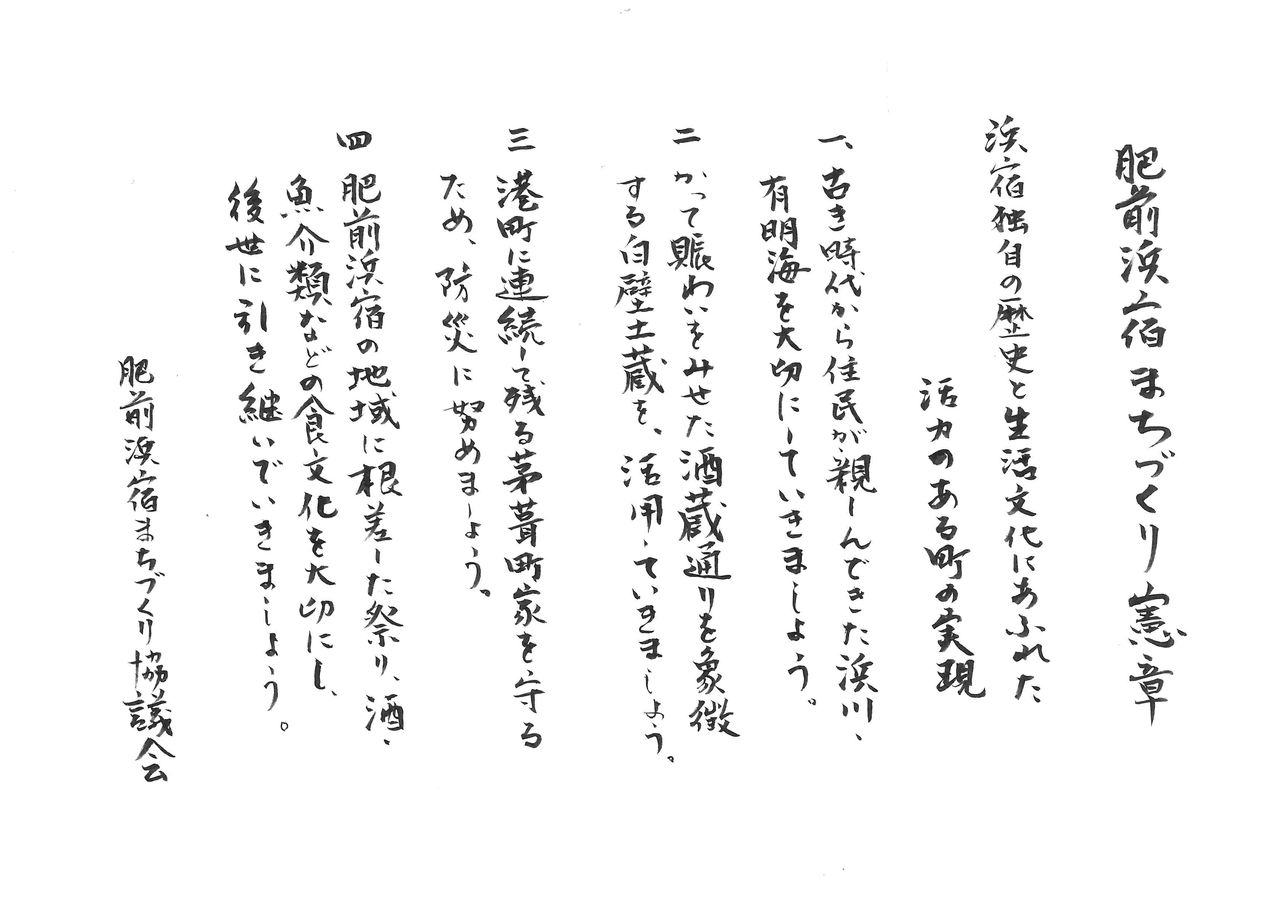 肥前浜宿まちづくり憲章
浜宿独自の歴史と生活文化にあふれた
活力のある町の実現
一、古き時代から住民が親しんできた浜川、
有明海を大切にしていきましょう。
二 かって賑わいをみせた酒蔵通りを象徴
する白壁土蔵を、活用していきましょう。
三 港町に連続して残る茅葺町家を守る
ため、防災に努めましょう。
四 肥前浜宿の地域に根差した祭り、酒、
魚介類などの食文化を大切にし、
後世に引き継いでいきましょう。
肥前浜宿まちづくり協議会